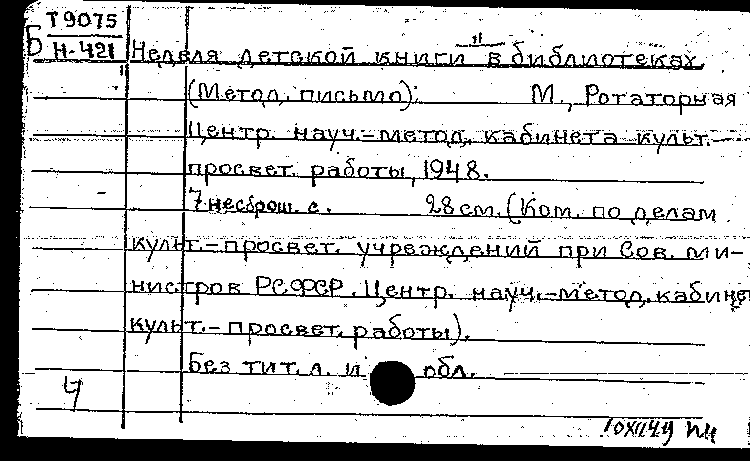 Т9075
Б Н-421
Неделя детской книги" в библиотеках
(Метод. письмо): М., Ротаторная
Центр. науч.-метод. кабинета культ.-
просвет. работы, 1948.
7 несброш. с. 28 см. (Ком. по делам
культ.-просвет. учреждений при Сов. ми-
нистров РСФСР. Центр. науч.-метод. кабинет
культ.-просвет. работы).
Без тит. л. и обл.
Ч